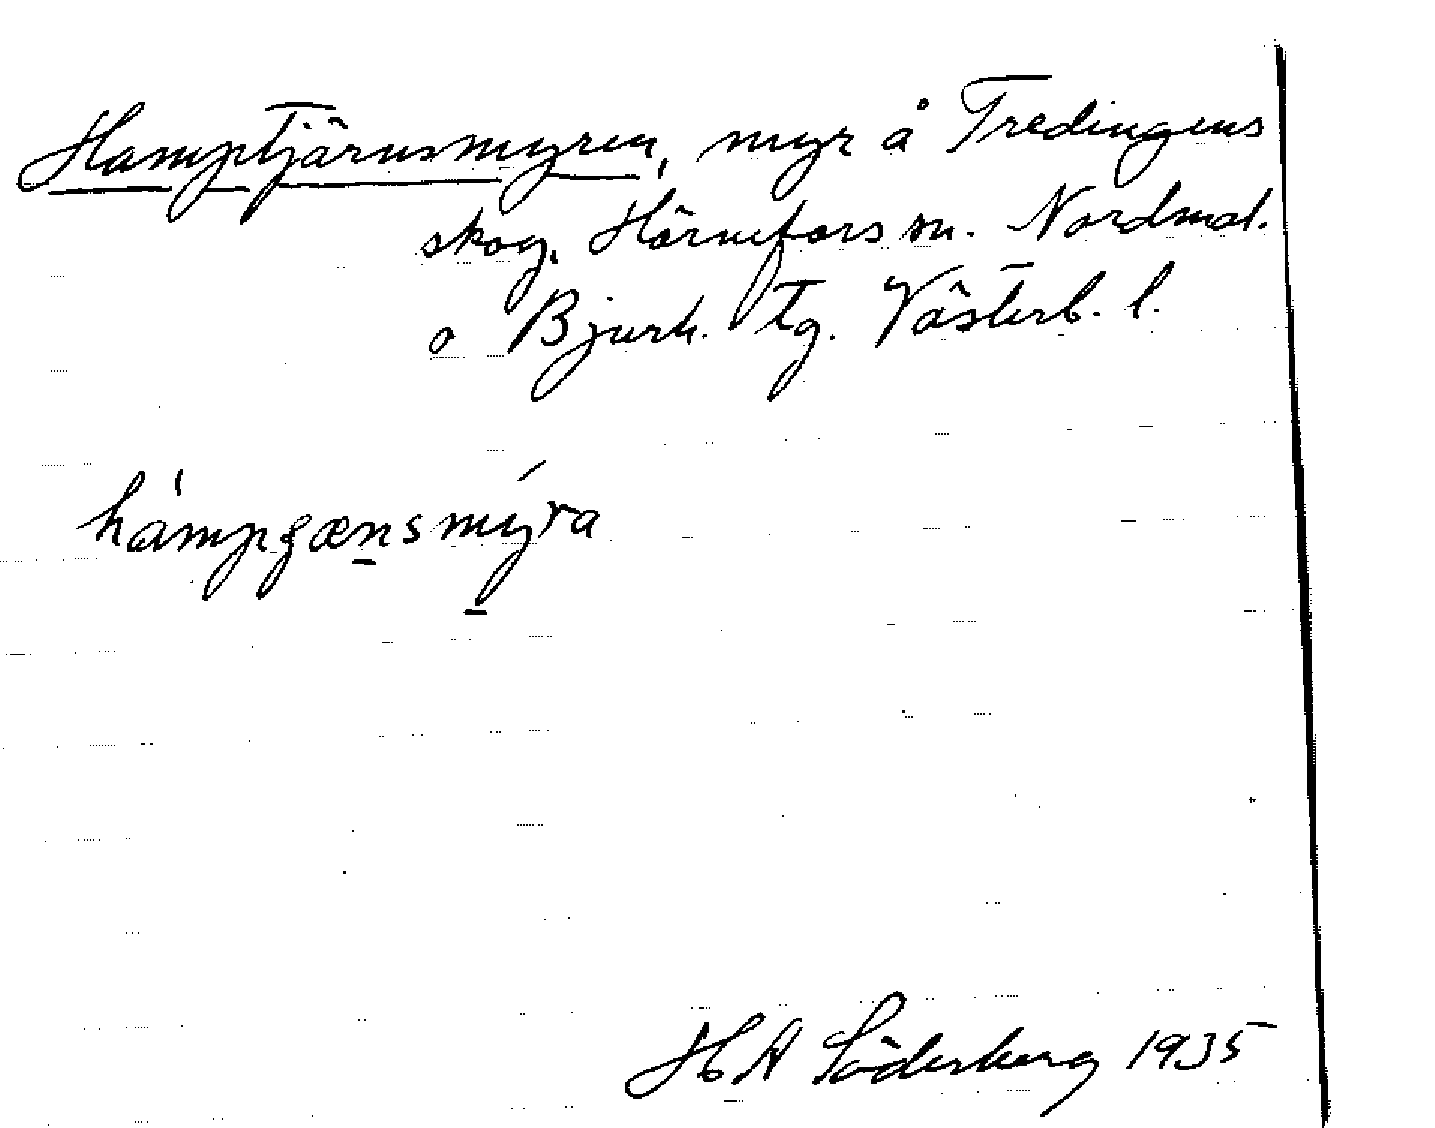 Hamptjärnsmyren, myr å Tredingens
skog. Hörnefors sn. Nordmal.
o Bjurh. tg. Västerb. l.
hámpgænsmýra
H A Söderberg 1935